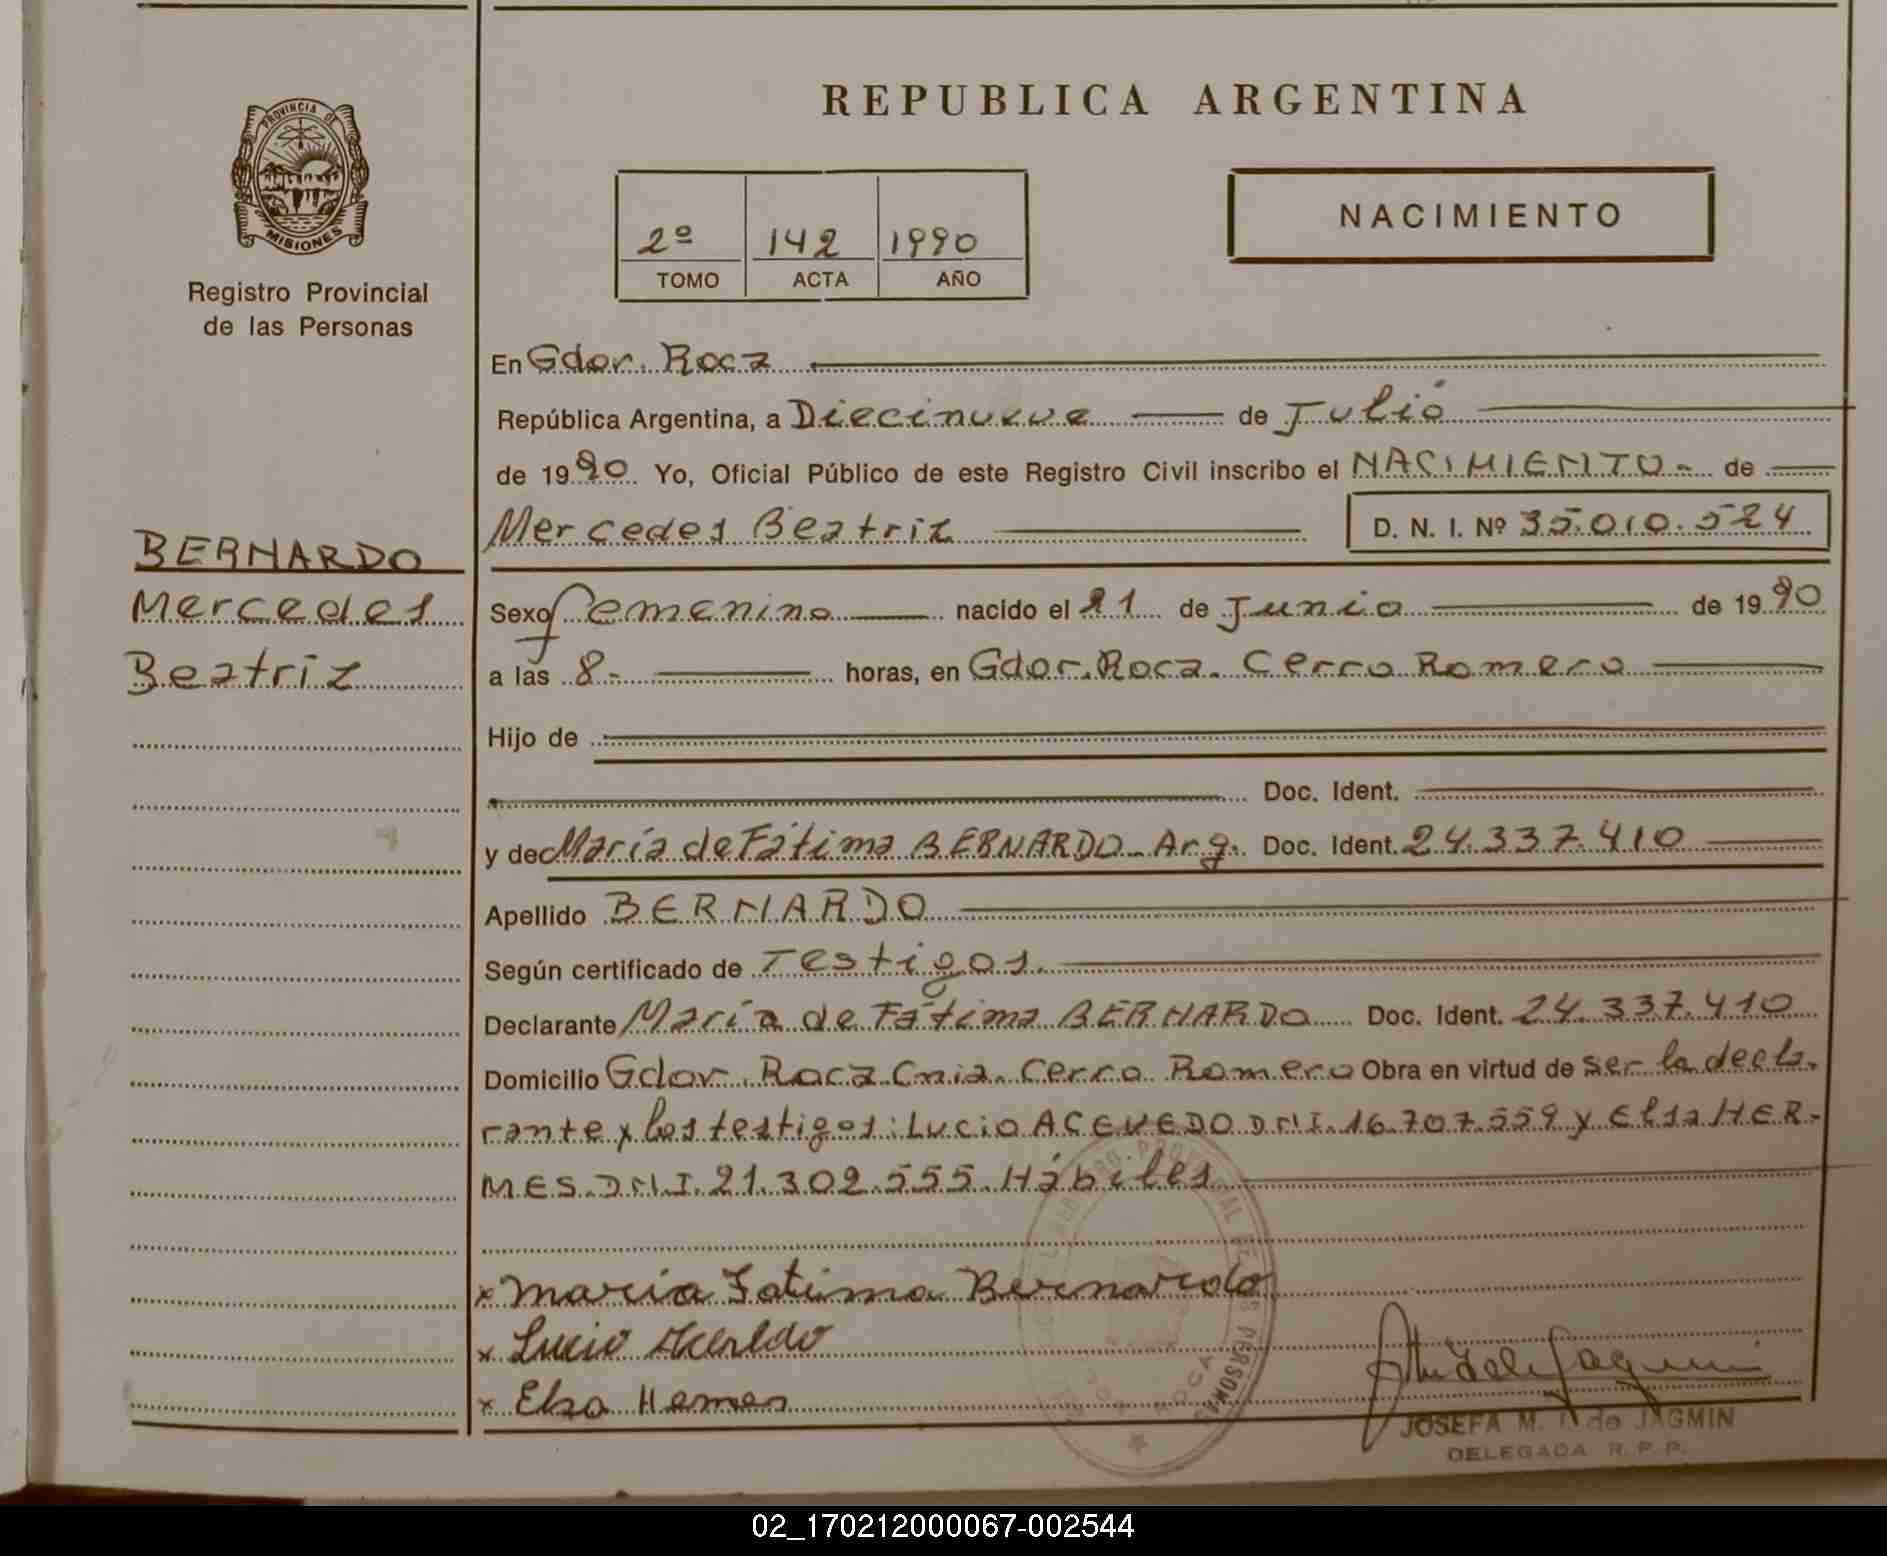 PROVINCIA DE
MISIONES
Registro Provincial
de las Personas
BERNARDO
Mercedes
Beatriz
REPUBLICA ARGENTINA
2º 142 1990
TOMO ACTA AÑO
NACIMIENTO
En Gdor. Roca
República Argentina, a Diecinueve de Julio
de 1990 Yo, Oficial Público de este Registro Civil inscribo el NACIMIENTO - de
Mercedes Beatriz D. N. I. Nº 35.010.524
Sexo femenino nacido el 21 de Junio de 1990
a las 8- horas, en Gdor. Roca. Cerro Romero
Hijo de
Doc. Ident.
y de María de Fátima BERNARDO - Arg. Doc. Ident. 24.337.410
Apellido BERNARDO
Según certificado de Testigos.
Declarante María de Fátima BERNARDO Doc. Ident. 24.337.410
Domicilio Gdor. Roca Cnia. Cerro Romero Obra en virtud de ser la decla-
rante y los testigos: Lucio ACEVEDO DNI. 16.707.559 y Elsa HER-
MES. DNI. 21.302.555. Hábiles
x Maria Fatima Bernardo
x Lucio Acevedo
x Elsa Hermes
JOSEFA M. de JAGMIN
DELEGADA R. P. P.
02_170212000067-002544